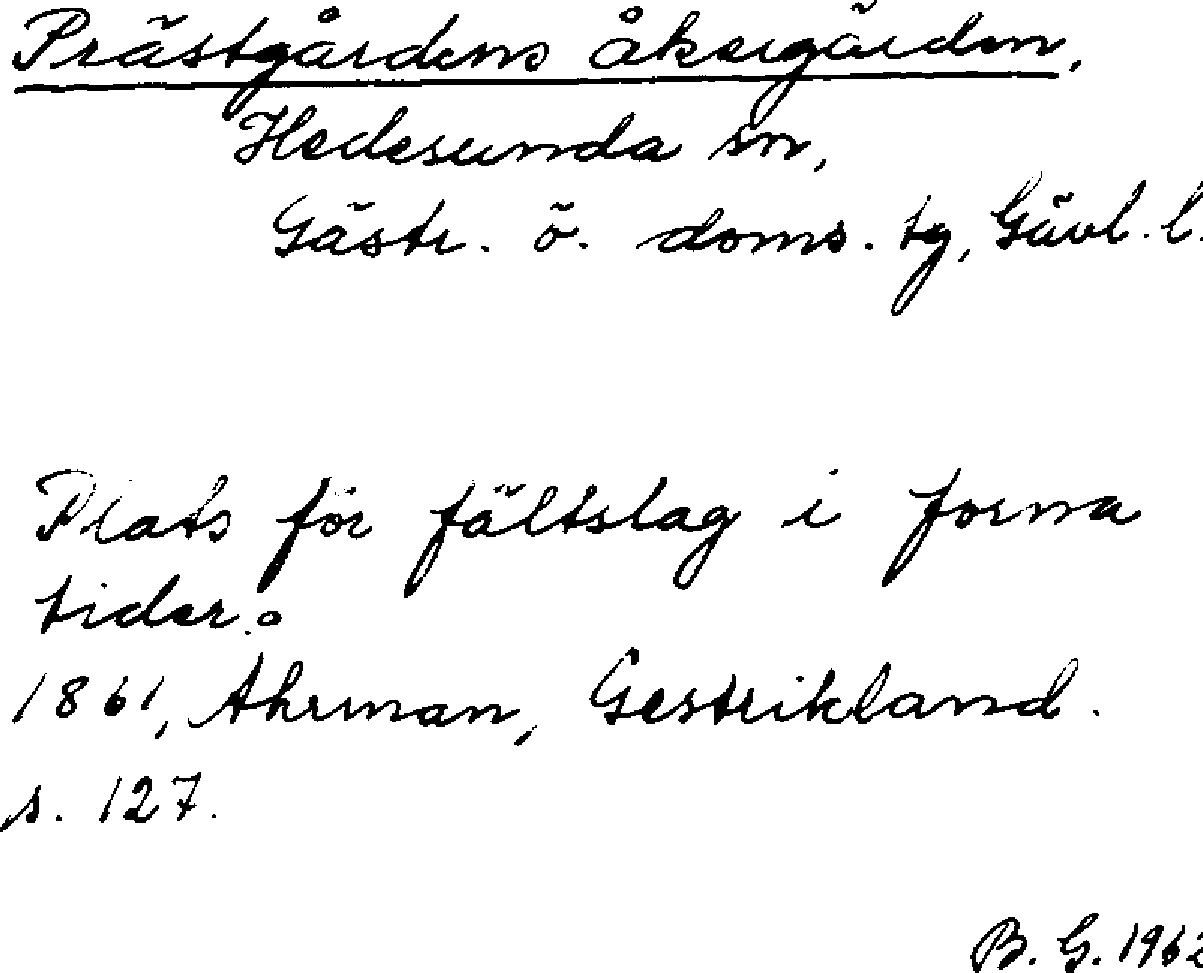 Prästgårdens åkergärden,
Hedesunda sn,
Gästr. ö. doms. tg, Gävl. l.
Plats för fältslag i forna
tider.
1861, Ahrman, Gestrikland.
s. 127.
B. G. 1962